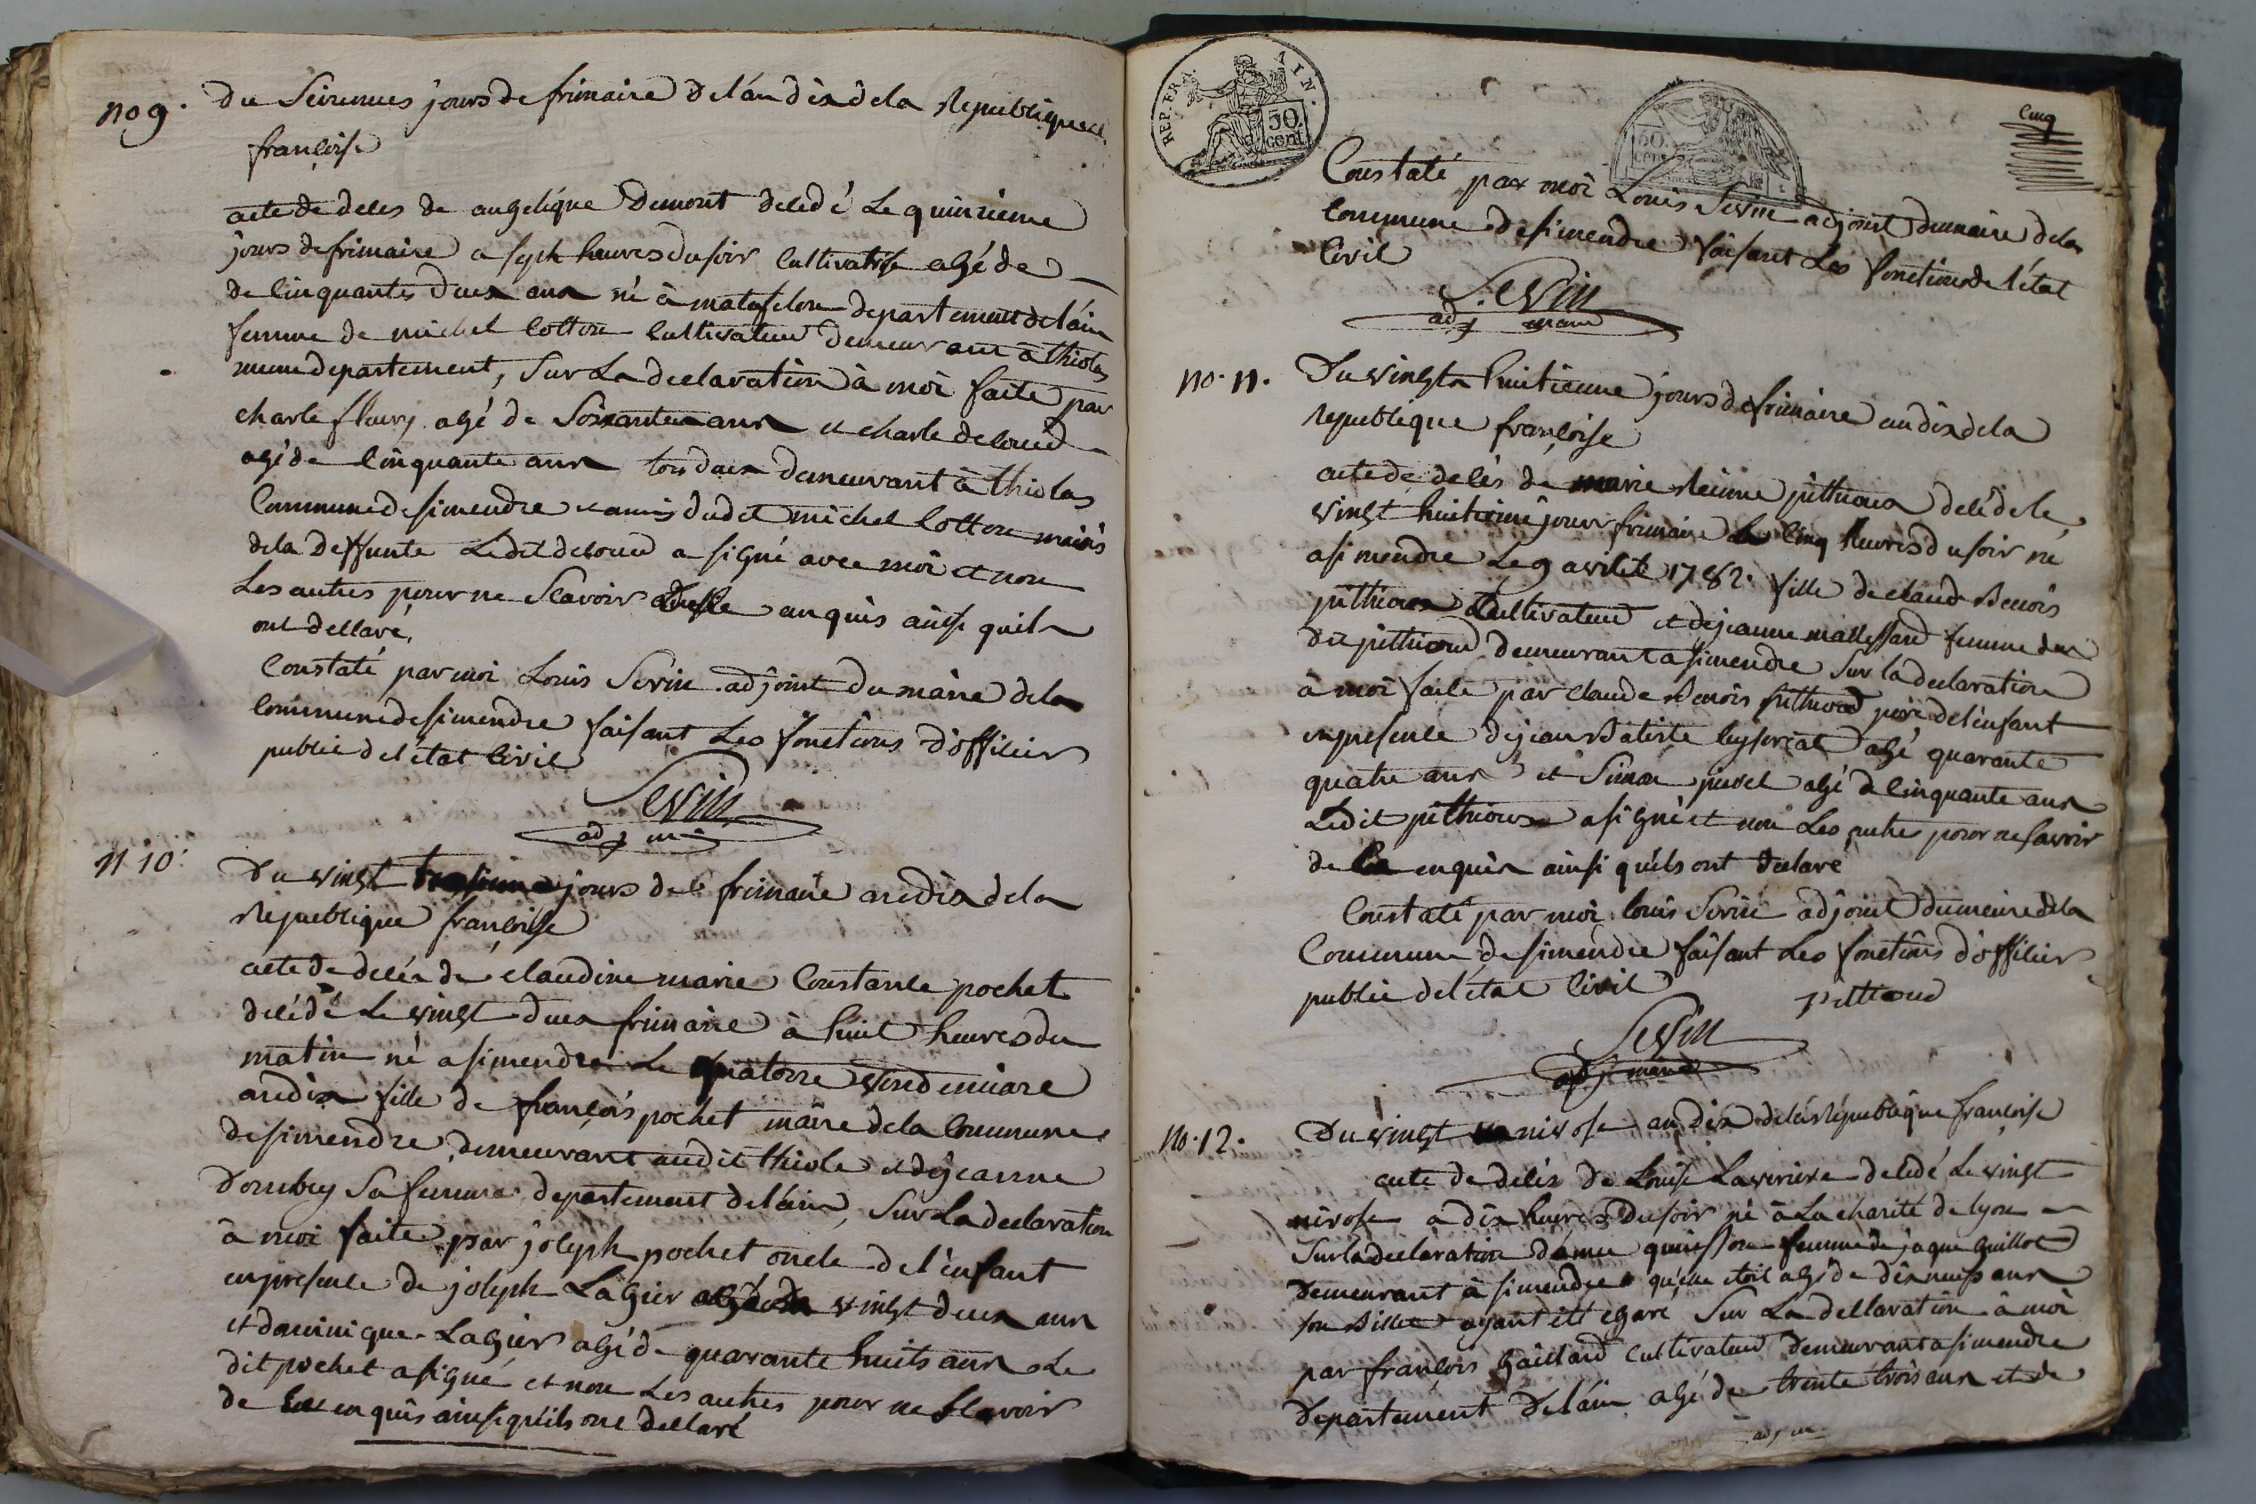 no 9. du Seiziemes jours de frimaire de l'an dix de la Republique
françoise
acte de deces de angelique Demont decedé Le quinzieme
jours de frimaire a sept heures du soir Cultivatrise agé de
de Cinquantes deux ans né à matafelon departement de l'ain
femme de michel Cotton Cultivateur demeurant à thiolas
meme departement, Sur La declaration à moi faite par
charle fleury agé de Soixante ans et charle
agé de Cinquante ans tous deux demeurant à thiolas
Commune de simendre et amis dudit michel Cotton
de la deffunte Ledit a signé avec moi et non
Les autres pour ne Scavoir enquis ainse quils
ont dellaré,
Constaté par moi Louis Sevin adjoint du maire de la
Commune de simendre faisant Les fonctions d'officier
public de l'état Civil
Sevin
adj m
n 10. Du vingt jours de frimaire an dix de la
Republique françoise
acte de decés de claudine marie Constance pochet
décédé Le vingt deux frimaire à huit heures du
matin né a simendre Le quatorze vendemiare
an dix fille de françois pochet maire de la Commune
de simendre demeurant audit thiole et de jeanne
Dombey Sa femme departement de l'ain, Sur La declaration
à moi faite par joseph pochet oncle de l'enfant
en presence de joseph Lagier agé de vingt deux ans
et dominique Lagier agé de quarante huits ans Le
dit pochet a signé et non Les autres pour ne Scavoir
de enquis ainse qu'ils ont dellaré
REP. FRA. AIN.
50 cent
50. cen
Cinq
Constaté par moi Louis Sevin adjoint du maire de la
Commune de simendre faisant Les fonctions de l'état
Civil
Sevin
adj maire
no. 11. Du vingt huitieme jours de frimaire an dix de la
Republique françoise
acte de decés de marie pithioux decédé le
vingt huitieme jour frimaire Cinq heures du soir né
a simendre Le 9 avril 1782. fille de claud Benois
pithioux Cultivateur et de jeanne femme du
dit pithioud demeurant a simendre Sur la declaration
à moi faite par claude Benois pithioud père de l'enfant
en presence de jean Batiste agé quarante
quatre ans et Simon agé de Cinquante ans
Ledit pithioux a signé et non Les autre pour ne savoir
de enquis ainsi qu'ils ont declaré
Constaté par moi louis Sevin adjoint du meire de la
Commune de simendre faisant Les fonctions d'officier
public de l'état Civil
pitthoud
Sevin
adj maire
no. 12. Du vingt nivose an dix de la Republique françoise
acte de décés de Louise Laveriere decedé Le vingt
nivose à dix heures du soir né à La charité de lyon
Sur la declaration femme de jaque Guillot
demeurant à simendre qu'elle étoit agé de dix neuf ans
son Billet ayant été egaré Sur La dellaration à moi
par françois Gaillard Cultivateur demeurant a simendre
departement De l'ain agé de trente trois ans et de
adj m